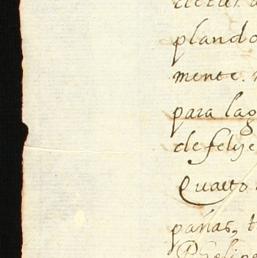 plando
mente.
para lag
de felipe
Quarto
pañas, t